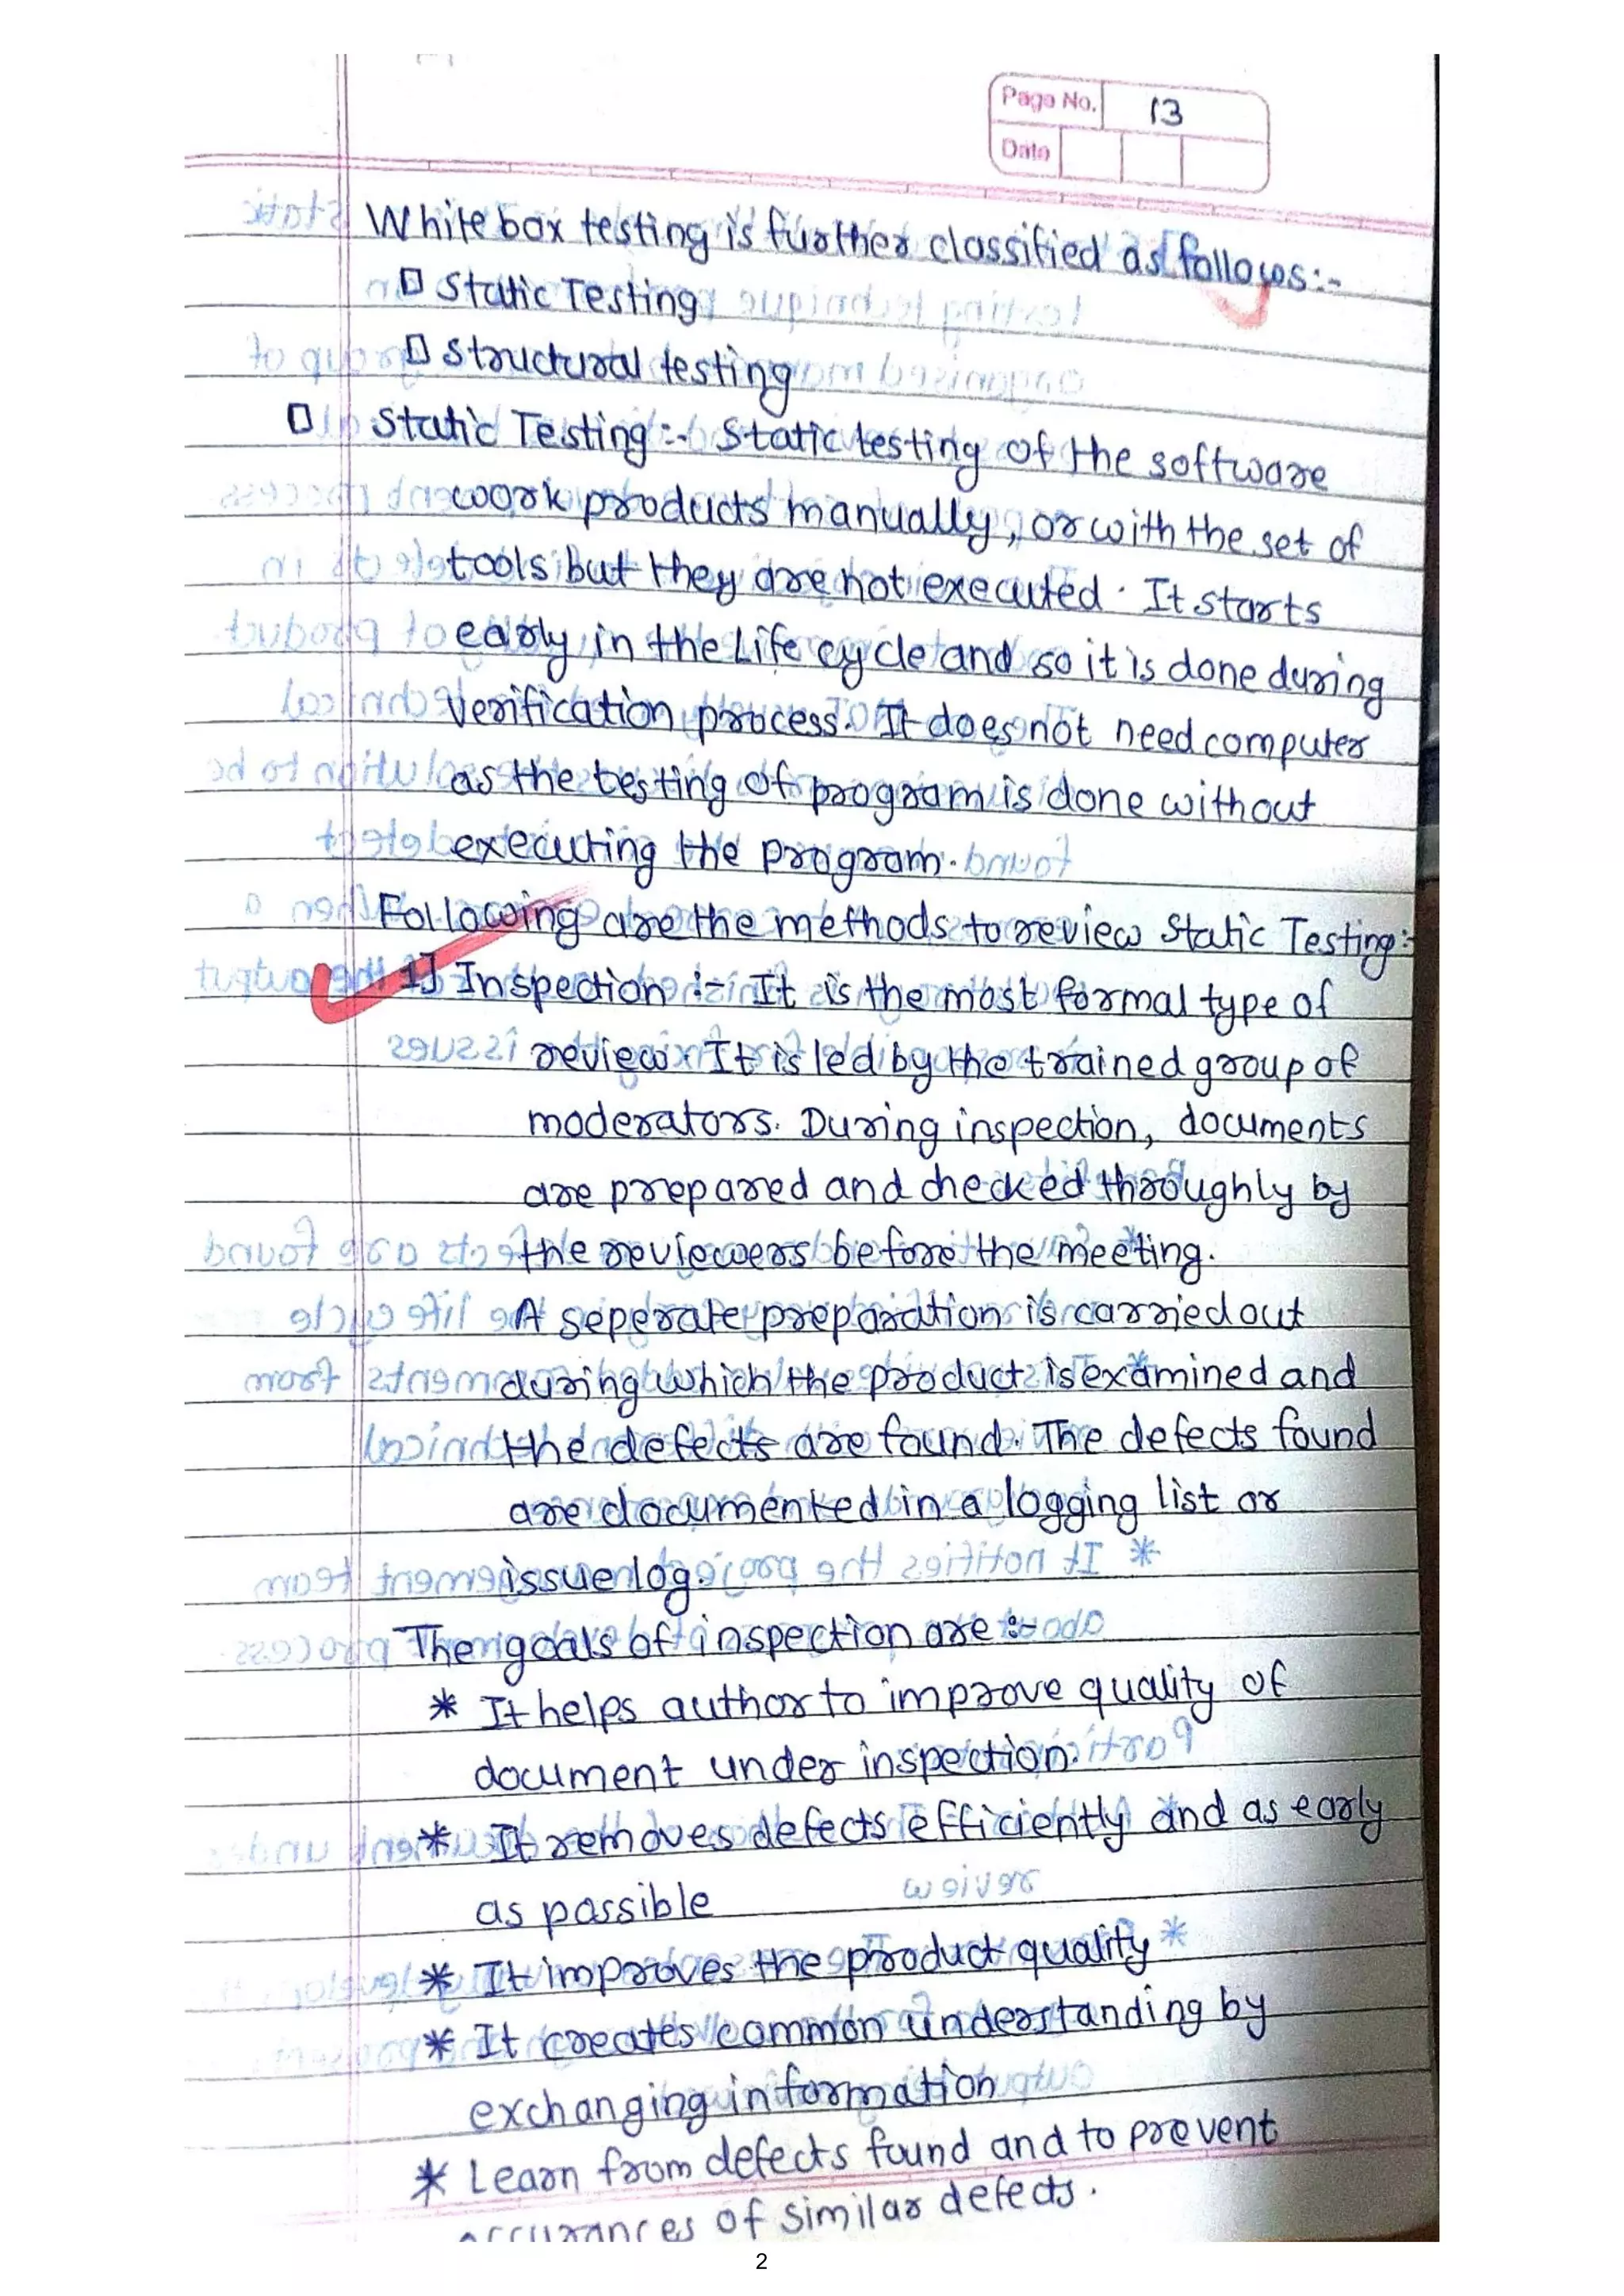 Page No. 13
Date
White box testing is further classified as follows:-
▯ Static Testing
▯ Structural testing
▯ Static Testing :- Static testing of the software
work products manually, or with the set of
tools but they are not executed. It starts
early in the Life cycle and so it is done during
verification process. It does not need computer
as the testing of program is done without
executing the program.
Following are the methods to review Static Testing:-
1] Inspection :- It is the most formal type of
review. It is led by the trained group of
moderators. During inspection, documents
are prepared and checked throughly by
the reviewers before the meeting.
A seperate preparation is carried out
during which the product is examined and
the defects are found. The defects found
are documented in a logging list or
issue log.
The goals of inspection are :-
* It helps author to improve quality of
document under inspection.
* It removes defects efficiently and as early
as possible
* It improves the product quality
* It creates common understanding by
exchanging information
* Learn from defects found and to prevent
of similar defects.
2